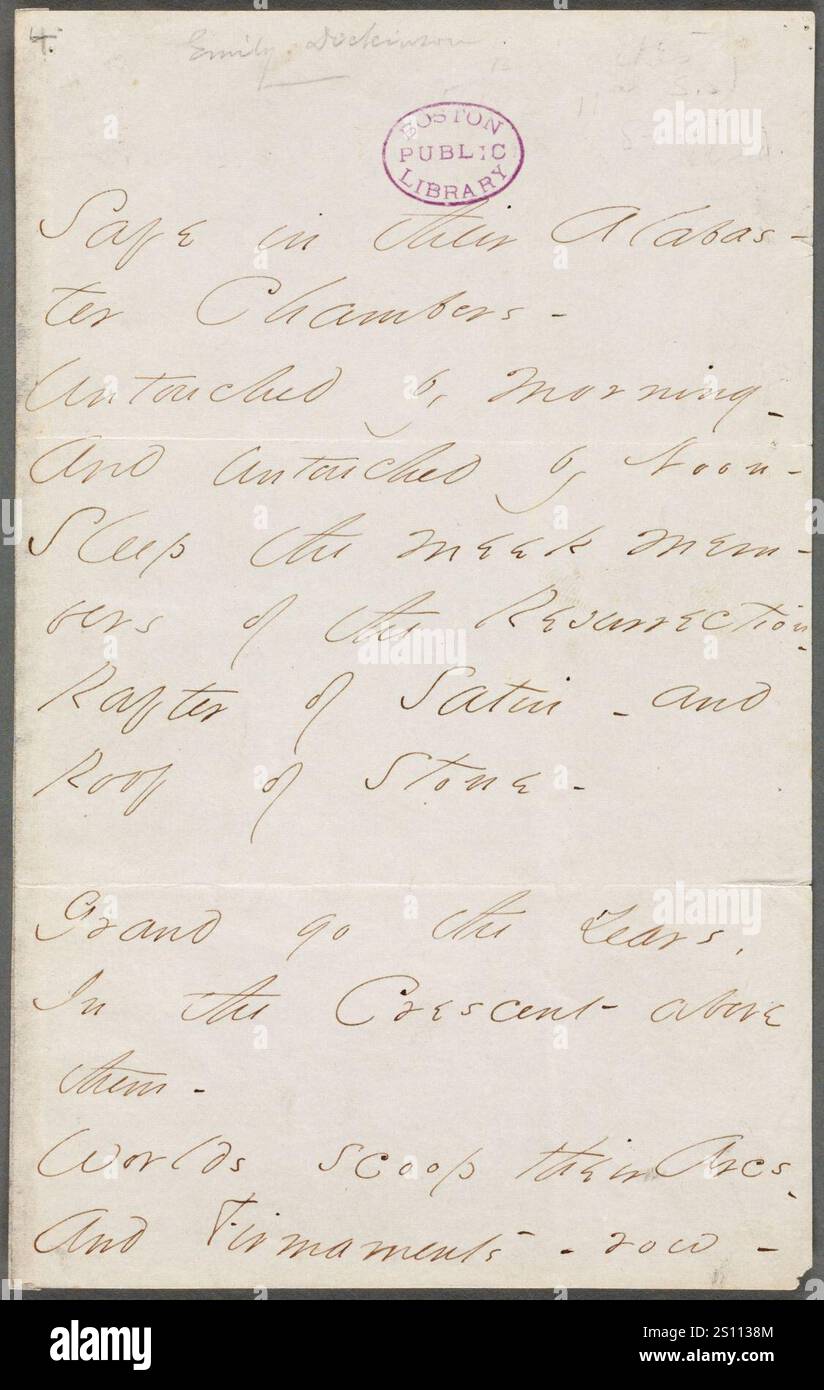 4.
Emily Dickinson
BOSTON
PUBLIC
LIBRARY
Safe in their Alabas-
ter Chambers -
Untouched by Morning -
And untouched by Noon -
Sleep the meek mem-
bers of the Resurrection -
Rafter of Satin - and
Roof of Stone -
Grand go the Years,
In the Crescent above
them -
Worlds scoop their Arcs -
And Firmaments - row -
alamy
Image ID: 2S1138M
www.alamy.com